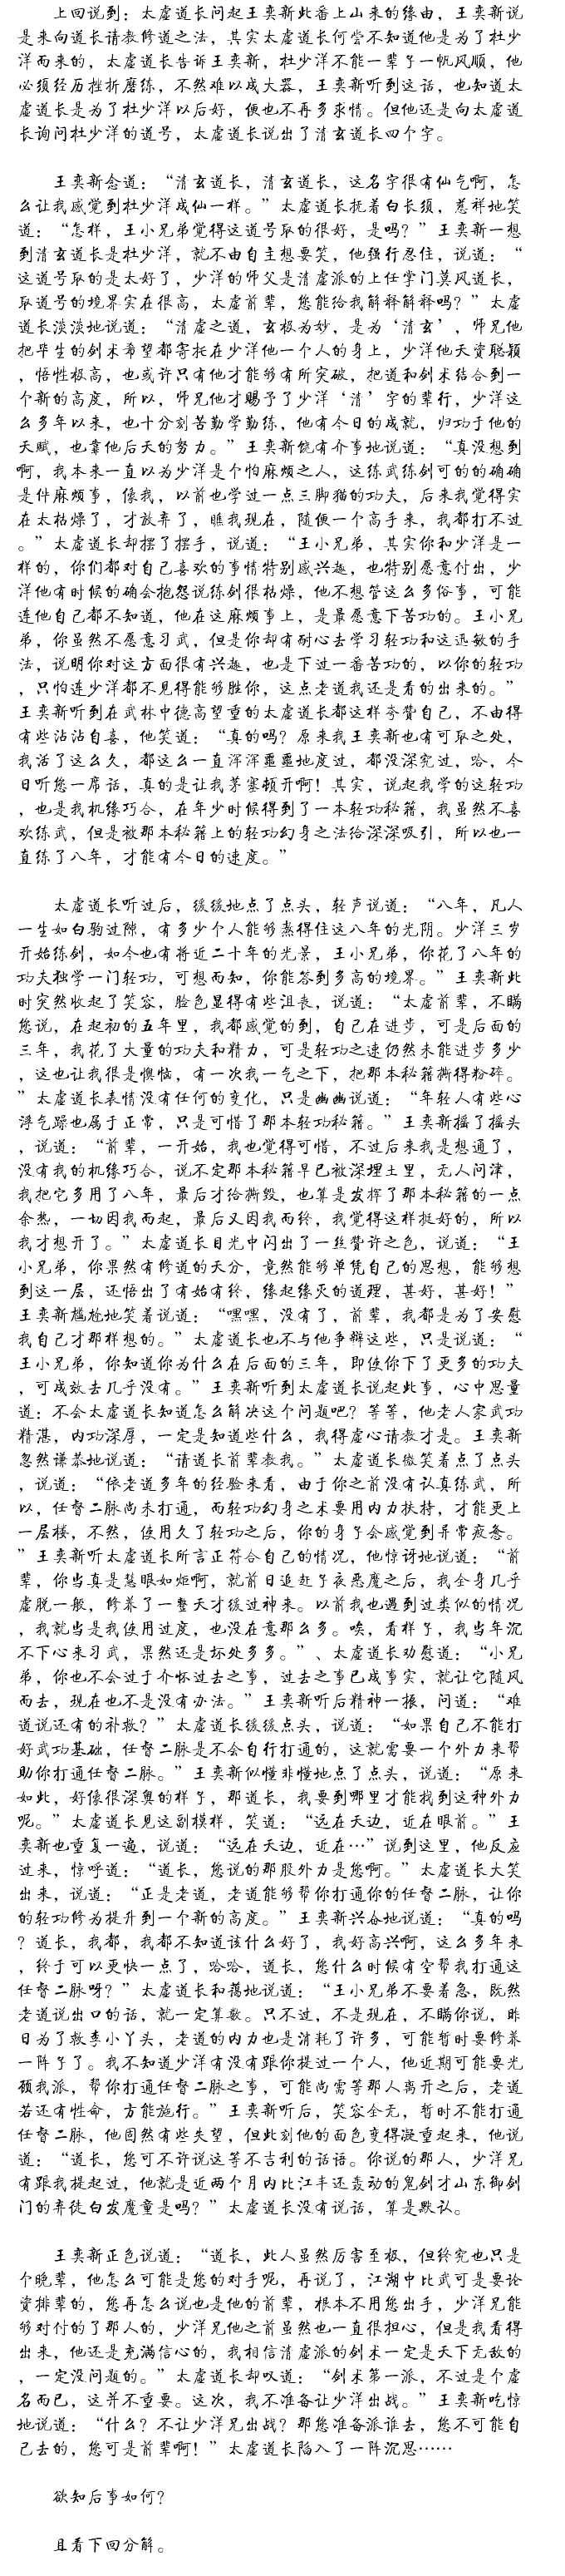 上回说到：太虚道长问起王奕新此番上山来的缘由，王奕新说
是来向道长请教修道之法，其实太虚道长何尝不知道他是为了杜少
洋而来的，太虚道长告诉王奕新，杜少洋不能一辈子一帆风顺，他
必须经历挫折磨练，不然难以成大器，王奕新听到这话，也知道太
虚道长是为了杜少洋以后好，便也不再多求情。但他还是向太虚道
长询问杜少洋的道号，太虚道长说出了清玄道长四个字。
王奕新念道：“清玄道长，清玄道长，这名字很有仙气啊，怎
么让我感觉到杜少洋成仙一样。”太虚道长抚着白长须，慈祥地笑
道：“怎样，王小兄弟觉得这道号取的很好，是吗？”王奕新一想
到清玄道长是杜少洋，就不由自主想要笑，他强行忍住，说道：“
这道号取的是太好了，少洋的师父是清虚派的上任掌门莫风道长，
取道号的境界实在很高，太虚前辈，您能给我解释解释吗？”太虚
道长淡淡地说道：“清虚之道，玄极为妙，是为‘清玄’，师兄他
把毕生的剑术希望都寄托在少洋他一个人的身上，少洋他天资聪颖
，悟性极高，也或许只有他才能够有所突破，把道和剑术结合到一
个新的高度，所以，师兄他才赐予了少洋‘清’字的辈行，少洋这
么多年以来，也十分刻苦勤学勤练，他有今日的成就，归功于他的
天赋，也靠他后天的努力。”王奕新饶有介事地说道：“真没想到
啊，我本来一直以为少洋是个怕麻烦之人，这练武练剑可的的确确
是件麻烦事，像我，以前也学过一点三脚猫的功夫，后来我觉得实
在太枯燥了，才放弃了，瞧我现在，随便一个高手来，我都打不过
。”太虚道长却摆了摆手，说道：“王小兄弟，其实你和少洋是一
样的，你们都对自己喜欢的事情特别感兴趣，也特别愿意付出，少
洋他有时候的确会抱怨说练剑很枯燥，他不想管这么多俗事，可能
连他自己都不知道，他在这麻烦事上，是最愿意下苦功的。王小兄
弟，你虽然不愿意习武，但是你却有耐心去学习轻功和这迅敏的手
法，说明你对这方面很有兴趣，也是下过一番苦功的，以你的轻功
，只怕连少洋都不见得能够胜你，这点老道我还是看的出来的。”
王奕新听到在武林中德高望重的太虚道长都这样夸赞自己，不由得
有些沾沾自喜，他笑道：“真的吗？原来我王奕新也有可取之处，
我活了这么久，都这么一直浑浑噩噩地度过，都没深究过，哈，今
日听您一席话，真的是让我茅塞顿开啊！其实，说起我学的这轻功
，也是我机缘巧合，在年少时候得到了一本轻功秘籍，我虽然不喜
欢练武，但是被那本秘籍上的轻功幻身之法给深深吸引，所以也一
直练了八年，才能有今日的速度。”
太虚道长听过后，缓缓地点了点头，轻声说道：“八年，凡人
一生如白驹过隙，有多少个人能够熬得住这八年的光阴。少洋三岁
开始练剑，如今也有将近二十年的光景，王小兄弟，你花了八年的
功夫独学一门轻功，可想而知，你能答到多高的境界。”王奕新此
时突然收起了笑容，脸色显得有些沮丧，说道：“太虚前辈，不瞒
您说，在起初的五年里，我都感觉的到，自己在进步，可是后面的
三年，我花了大量的功夫和精力，可是轻功之速仍然未能进步多少
，这也让我很是懊恼，有一次我一气之下，把那本秘籍撕得粉碎。
”太虚道长表情没有任何的变化，只是幽幽说道：“年轻人有些心
浮气躁也属于正常，只是可惜了那本轻功秘籍。”王奕新摇了摇头
，说道：“前辈，一开始，我也觉得可惜，不过后来我是想通了，
没有我的机缘巧合，说不定那本秘籍早已被深埋土里，无人问津，
我把它多用了八年，最后才给撕毁，也算是发挥了那本秘籍的一点
余热，一切因我而起，最后又因我而终，我觉得这样挺好的，所以
我才想开了。”太虚道长目光中闪出了一丝赞许之色，说道：“王
小兄弟，你果然有修道的天分，竟然能够单凭自己的思想，能够想
到这一层，还悟出了有始有终，缘起缘灭的道理，甚好，甚好！”
王奕新尴尬地笑着说道：“嘿嘿，没有了，前辈，我都是为了安慰
我自己才那样想的。”太虚道长也不与他争辩这些，只是说道：“
王小兄弟，你知道你为什么在后面的三年，即使你下了更多的功夫
，可成效去几乎没有。”王奕新听到太虚道长说起此事，心中思量
道：不会太虚道长知道怎么解决这个问题吧？等等，他老人家武功
精湛，内功深厚，一定是知道些什么，我得虚心请教才是。王奕新
忽然谦恭地说道：“请道长前辈教我。”太虚道长微笑着点了点头
，说道：“依老道多年的经验来看，由于你之前没有认真练武，所
以，任督二脉尚未打通，而轻功幻身之术要用内力扶持，才能更上
一层楼，不然，使用久了轻功之后，你的身子会感觉到异常疲惫。
”王奕新听太虚道长所言正符合自己的情况，他惊讶地说道：“前
辈，你当真是慧眼如炬啊，就前日追赶子夜恶魔之后，我全身几乎
虚脱一般，修养了一整天才缓过神来。以前我也遇到过类似的情况
，我就当是我使用过度，也没在意那么多。唉，看样子，我当年沉
不下心来习武，果然还是坏处多多。”、太虚道长劝慰道：“小兄
弟，你也不会过于介怀过去之事，过去之事已成事实，就让它随风
而去，现在也不是没有办法。”王奕新听后精神一振，问道：“难
道说还有的补救？”太虚道长缓缓点头，说道：“如果自己不能打
好武功基础，任督二脉是不会自行打通的，这就需要一个外力来帮
助你打通任督二脉。”王奕新似懂非懂地点了点头，说道：“原来
如此，好像很深奥的样子，那道长，我要到哪里才能找到这种外力
呢。”太虚道长见这副模样，笑道：“远在天边，近在眼前。”王
奕新也重复一遍，说道：“远在天边，近在…”说到这里，他反应
过来，惊呼道：“道长，您说的那股外力是您啊。”太虚道长大笑
出来，说道：“正是老道，老道能够帮你打通你的任督二脉，让你
的轻功修为提升到一个新的高度。”王奕新兴奋地说道：“真的吗
？道长，我都，我都不知道该什么好了，我好高兴啊，这么多年来
，终于可以更快一点了，哈哈，道长，您什么时候有空帮我打通这
任督二脉呀？”太虚道长和蔼地说道：“王小兄弟不要着急，既然
老道说出口的话，就一定算数。只不过，不是现在，不瞒你说，昨
日为了救李小丫头，老道的内力也是消耗了许多，可能暂时要修养
一阵子了。我不知道少洋有没有跟你提过一个人，他近期可能要光
顾我派，帮你打通任督二脉之事，可能尚需等那人离开之后，老道
若还有性命，方能施行。”王奕新听后，笑容全无，暂时不能打通
任督二脉，他固然有些失望，但此刻他的面色变得凝重起来，他说
道：“道长，您可不许说这等不吉利的话语。你说的那人，少洋兄
有跟我提起过，他就是近两个月内比江丰还轰动的鬼剑才山东御剑
门的弃徒白发魔童是吗？”太虚道长没有说话，算是默认。
王奕新正色说道：“道长，此人虽然厉害至极，但终究也只是
个晚辈，他怎么可能是您的对手呢，再说了，江湖中比武可是要论
资排辈的，您再怎么说也是他的前辈，根本不用您出手，少洋兄能
够对付的了那人的，少洋兄他之前虽然也一直很担心，但是我看得
出来，他还是充满信心的，我相信清虚派的剑术一定是天下无敌的
，一定没问题的。”太虚道长却叹道：“剑术第一派，不过是个虚
名而已，这并不重要。这次，我不准备让少洋出战。”王奕新吃惊
地说道：“什么？不让少洋兄出战？那您准备派谁去，您不可能自
己去的，您可是前辈啊！”太虚道长陷入了一阵沉思……
欲知后事如何？
且看下回分解。